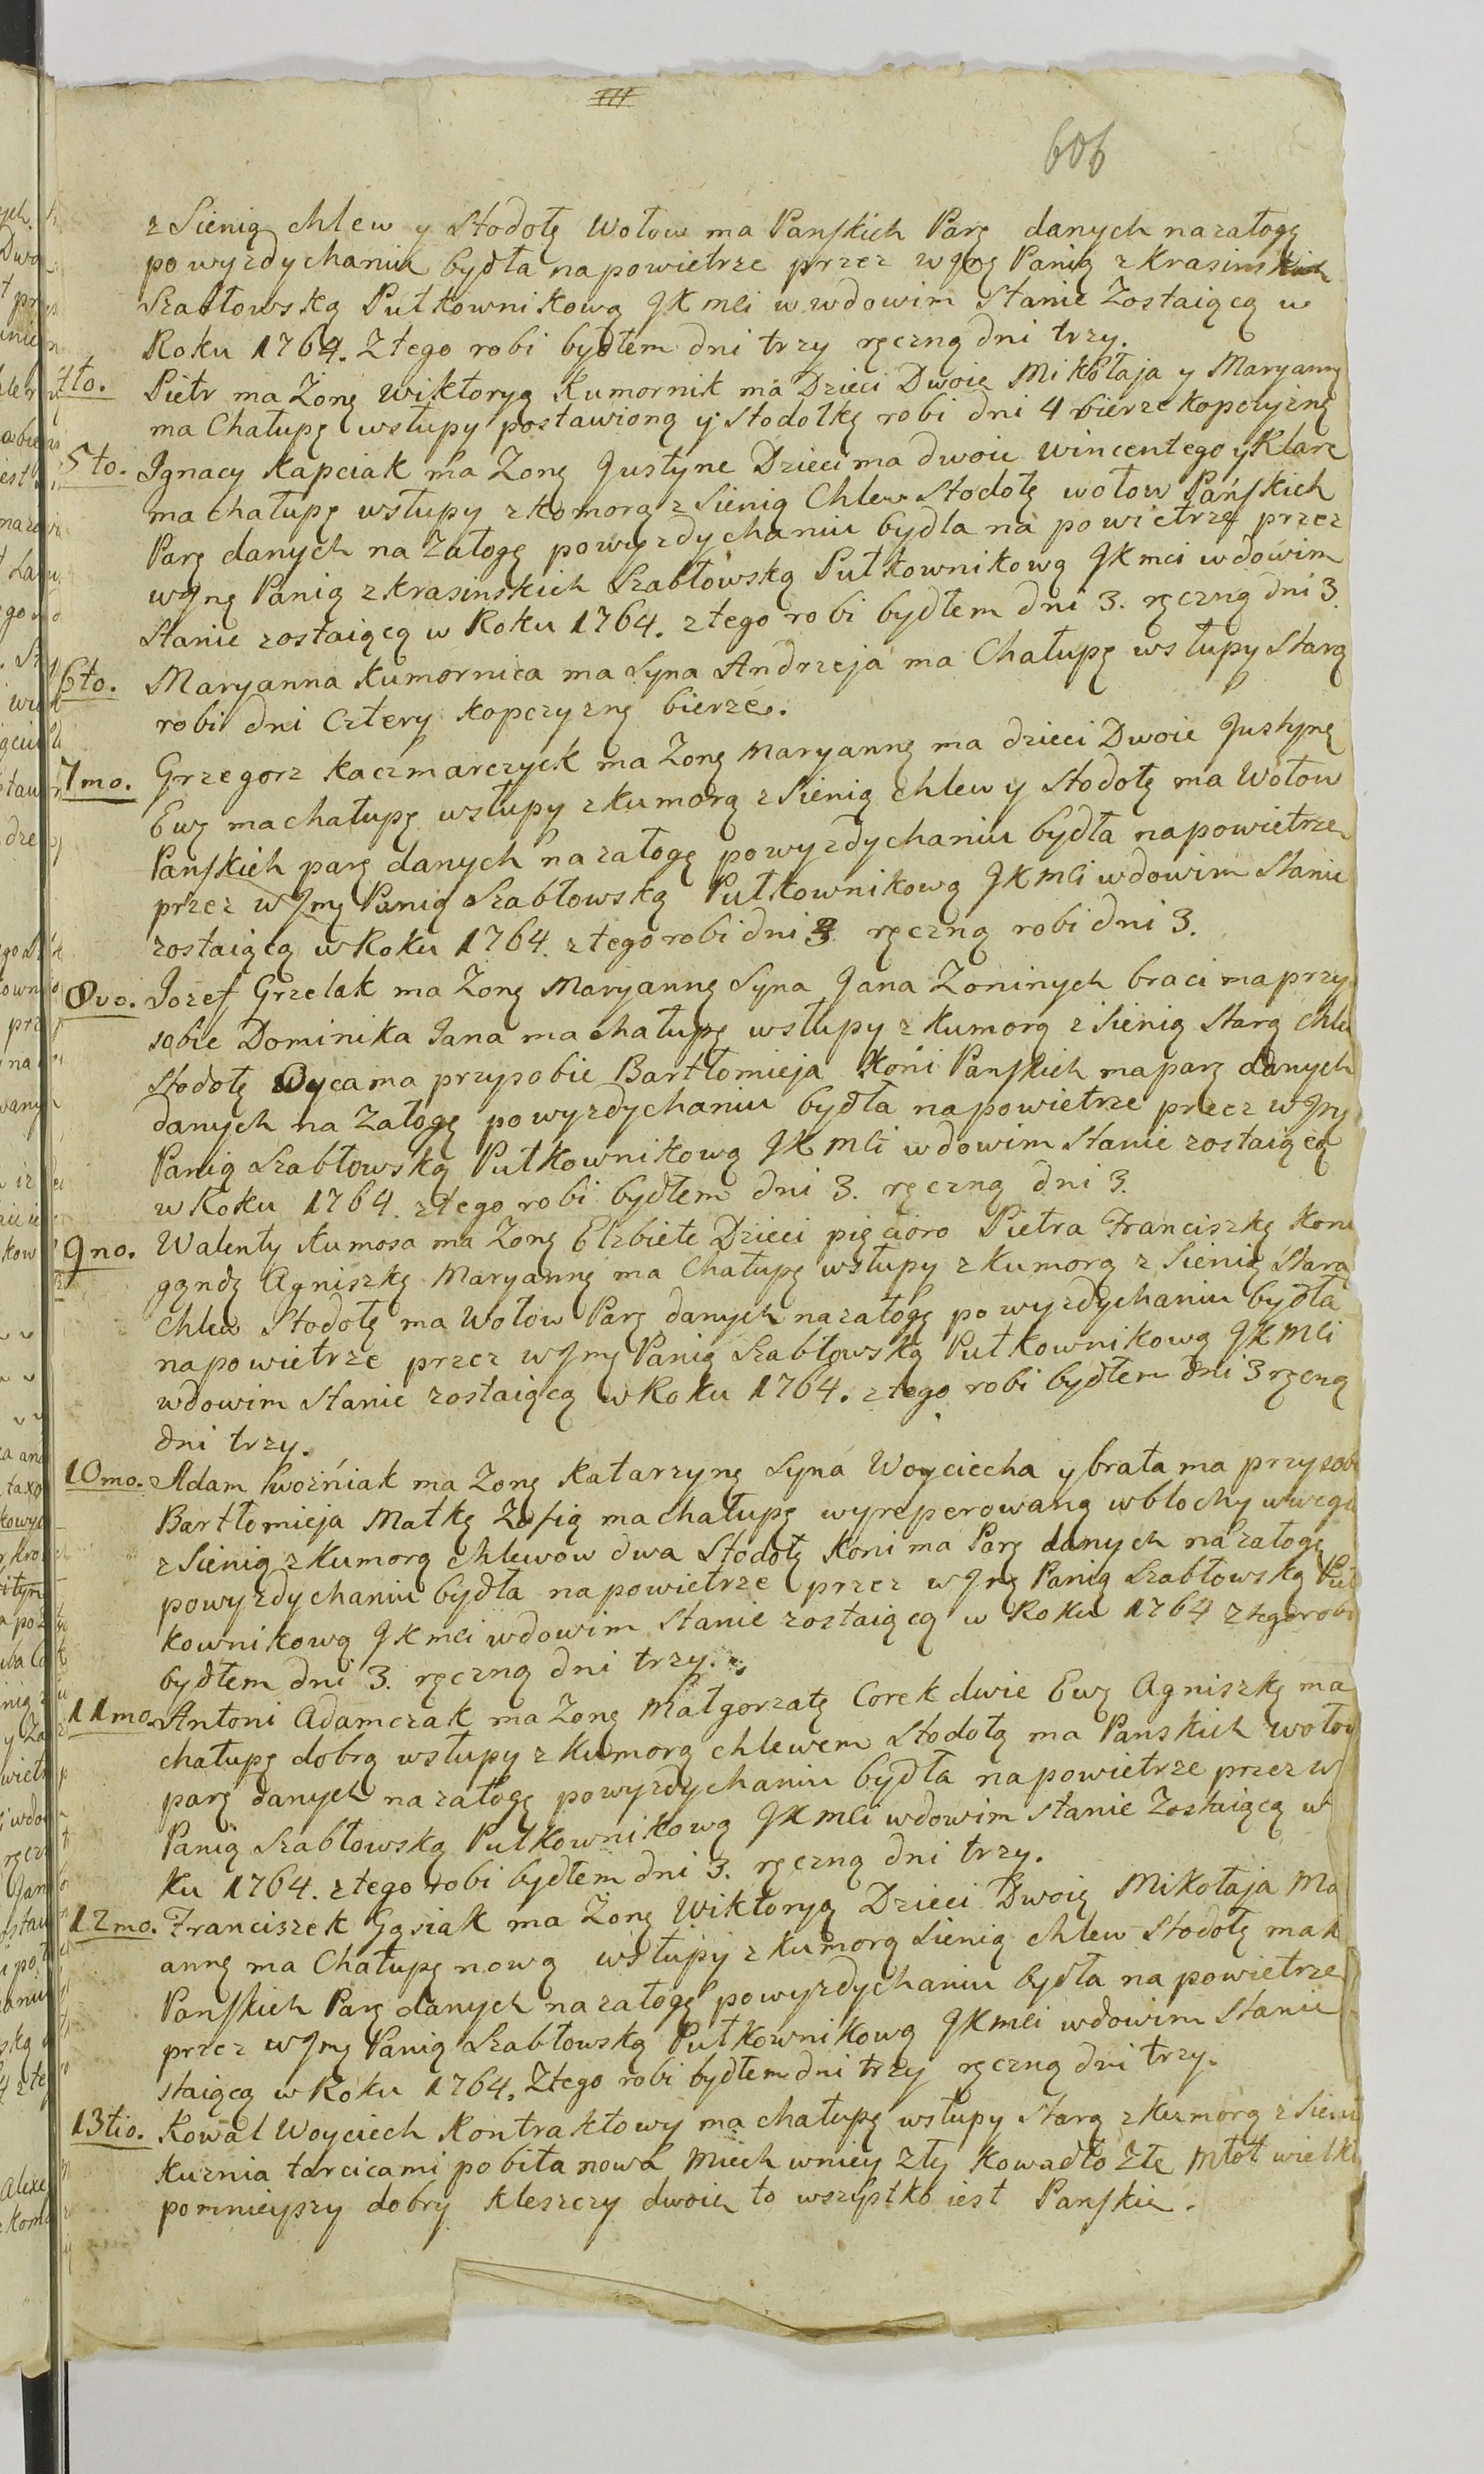 606
z Sienią chlew y Stodołę Wołow ma Panskich Parę danych na załogę
po wyzdychaniu bydła na powietrze przez wJmę Panią z Krasinskich
Szabłowską Pułkownikową JKmci w wdowim Stanie Zostaiącą w
Roku 1764. Z tego robi bydłem dni trzy ręczną dni trzy.
4to. Pietr ma Zonę Wiktoryą Kumornik ma Dzieci Dwoie Mikołaja y Maryannę
ma Chałupę wsłupy postawioną y Stodołkę robi dni 4 bierze kopczyznę
5to. Ignacy Kapciak ma Zonę Justynę Dzieci ma dwoie Wincentego y Klarę
ma chałupę wsłupy z komorą z Sienią Chlew Stodołę wołow Pańskich
Parę danych na Załogę powyzdychaniu bydla na powietrze przez
wJmę Panią z Krasinskich Szabłowską Pułkownikową JKmci wdowim
Stanie zostaiącą w Roku 1764. z tego robi bydłem dni 3. ręczną dni 3.
6to. Maryanna Kumornica ma Syna Andrzeja ma Chałupę wsłupy Starą
robi dni Cztery kopczyznę bierze.
7mo. Grzegorz Kaczmarczyck ma Zonę Maryannę ma dzieci Dwoie Justynę
Ewę ma chałupę wsłupy z kumorą z Sienią chlew y Stodołę ma Wołow
Panskich parę danych na załogę powyzdychaniu bydła na powietrze
przez wJmę Panią Szabłowską Pułkownikową JKmci wdowim Stanie
zostaiącą w Roku 1764. z tego robi dni 3 ręczną robi dni 3.
8vo. Jozef Grzelak ma Zonę Maryannę Syna Jana Zoninych braci ma przy
sobie Dominika Jana ma chałupę wsłupy z kumorą z Sienią Starą chle
Stodołę Oyca ma przysobie Bartłomieja Koni Panskich ma parę danych
danych na Załogę powyzdychaniu bydła na powietrze przez wJmę
Panią Szabłowską Pułkownikową JKmci wdowim Stanie zostaiącą
w Roku 1764. z tego robi bydłem dni 3. ręczną dni 3.
9no. Walenty Kumosa ma Zonę Elzbietę Dzieci pięcioro Pietra Franciszkę Kone
gądę Agniszkę Maryannę ma Chałupę wsłupy z kumorą z Sienią Starą
chlew Stodołę ma Wołow Parę danych na załogę powyzdychaniu bydła
na powietrze przez wJmę Panią Szabłowską Pułkownikową JKmci
wdowim Stanie zostaiącą w Roku 1764. z tego robi bydłem dni 3 ręczną
dni trzy.
10mo. Adam Woźniak ma Zonę Katarzynę Syna Woyciecha y brata ma przysob
Bartłomieja Matkę Zofią ma chałupę wyreperowaną w blochy w węg
z Sienią z kumorą chlewow dwa Stodołę Koni ma Parę danych na załogę
powyzdychaniu bydła na powietrze przez wJmę Panią Szabłowską Puł
kownikową JKmci wdowim Stanie zostaiącą w Roku 1764 z tego robi
bydłem dni 3. ręczną dni trzy.
11mo. Antoni Adamczak ma Zonę Małgorzatę Corek dwie Ewę Agniszkę ma
chałupę dobrą wsłupy z kumorą chlewem Stodołą ma Panskich wołow
parę danych na załogę powyzdychaniu bydła na powietrze przez w
Panią Szabłowską Pułkownikową JKmci wdowim stanie Zostaiącą w
ku 1764. z tego robi bydłem dni 3. ręczną dni trzy.
12mo. Franciszek Gąsiak ma Zonę Wiktoryą Dzieci Dwoię Mikołaja Ma
annę ma Chałupę nową wsłupy z kumorą Sienią chlew Stodołę ma k
Panskich Parę danych na załogę powyzdychaniu bydła na powietrze
przez wJmę Panią Szabłowską Pułkownikową JKmci wdowim Stanie
staiącą w Roku 1764. Z tego robi bydłem dni trzy ręczną dni trzy.
13tio. Kowal Woyciech Kontraktowy ma chałupę wsłupy Starą z kumorą z Sieni
Kuznia tarcicami pobita nowa Miech wniey zły Kowadło złe Młot wielki
pomnieyszy dobry kleszczy dwoie to wszystko iest Panskie.